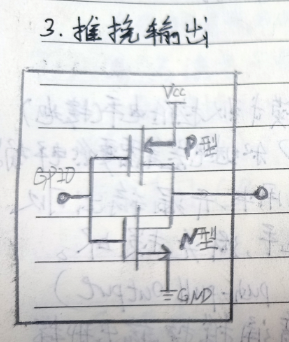 3. 推挽输出
Vcc
P型
GPIO
N型
GND